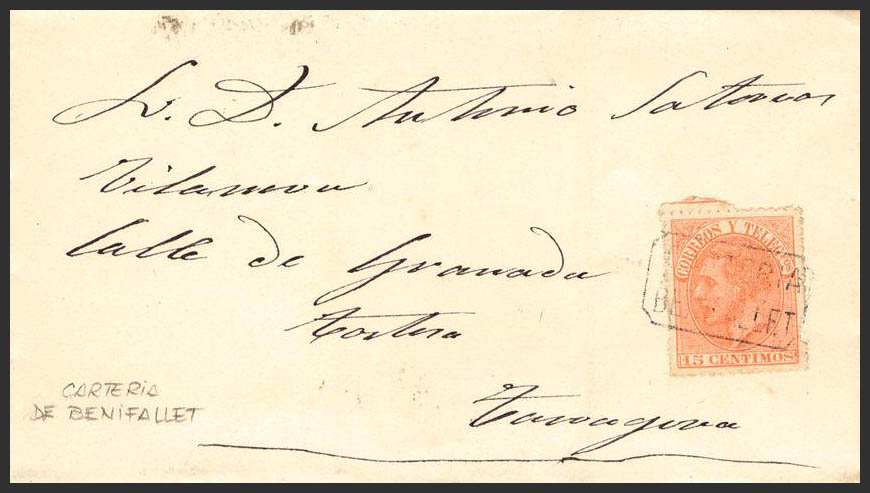 S. D. Antonio Satorras
Vilanova
Calle de Granada
Tortosa
Tarragona
CORREOS Y TELEGFOS
15 CENTIMOS
CARTERIA
DE BENIFALLET